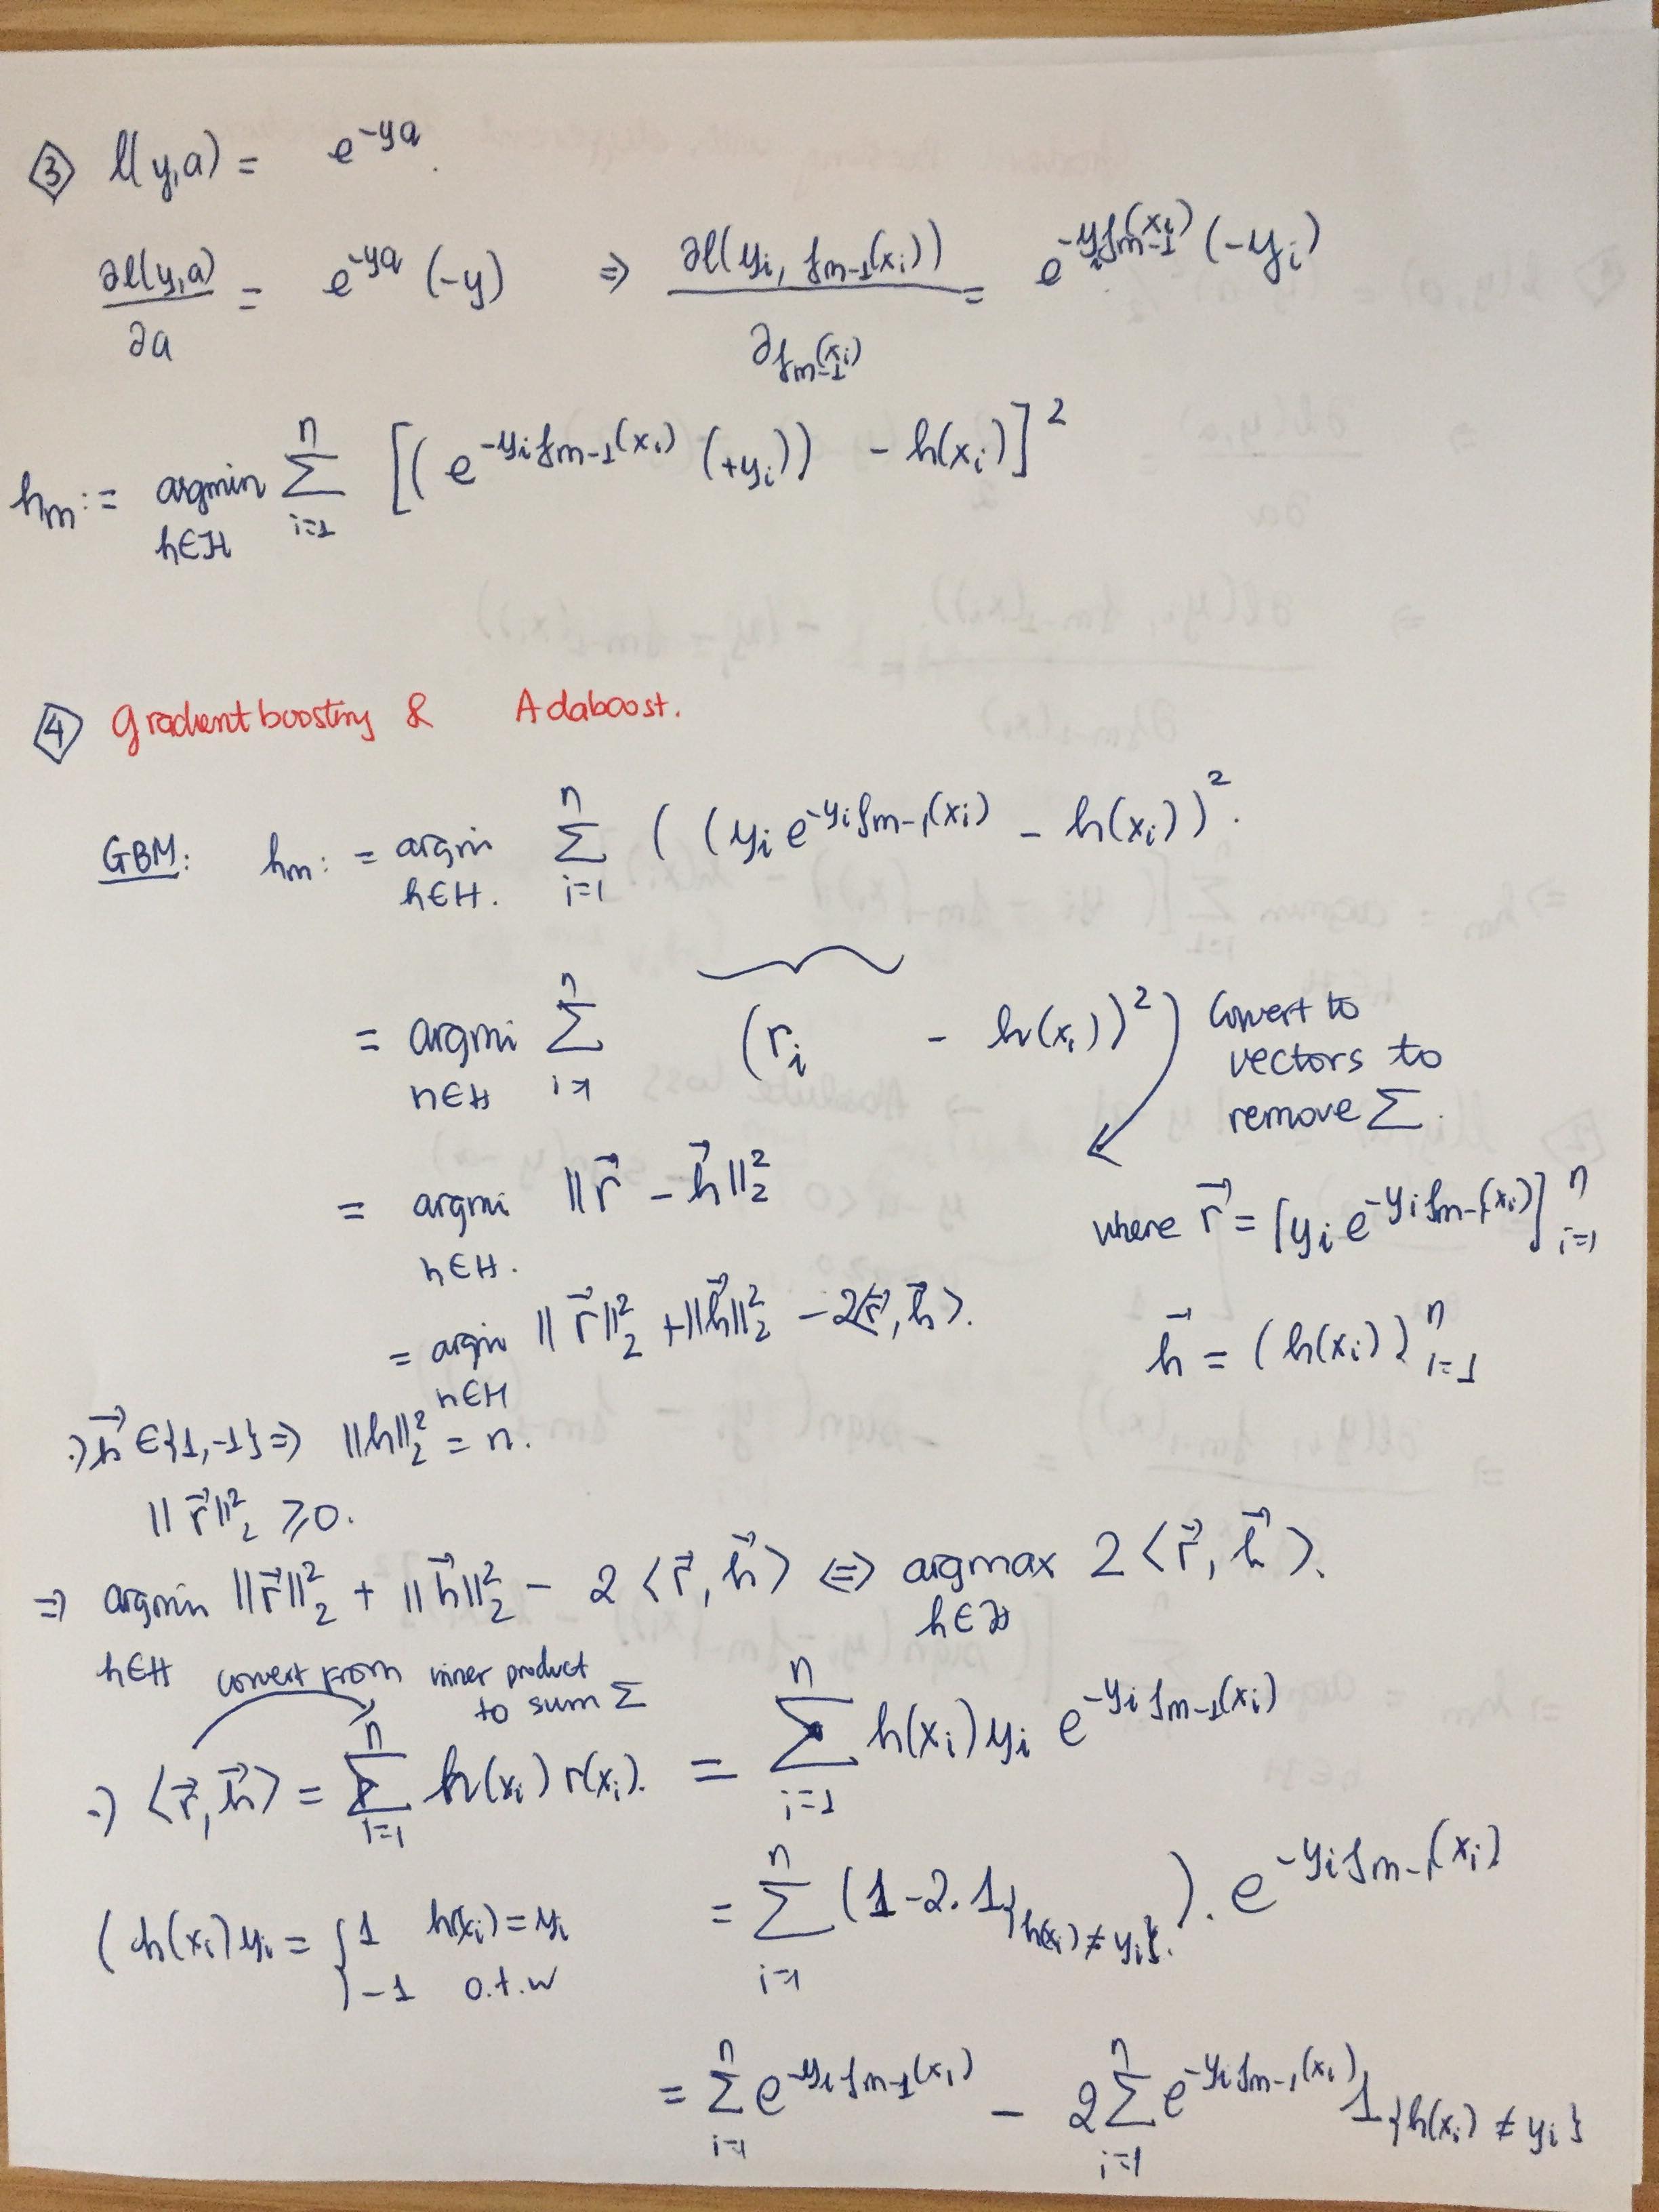 ③ l(y,a) = e^{-ya}.
∂l(y,a)/∂a = e^{-ya} (-y) ⇒ ∂l(y_i, f_{m-1}(x_i))/∂f_{m-1}(x_i) = e^{-y_i f_{m-1}(x_i)} (-y_i)
h_m := argmin_{h∈H} Σ_{i=1}^{n} [(e^{-y_i f_{m-1}(x_i)} (+y_i)) - h(x_i)]^2
④ Gradient boosting & Adaboost.
GBM: h_m := argmin_{h∈H.} Σ_{i=1}^{n} ((y_i e^{-y_i f_{m-1}(x_i)} - h(x_i))^2.
= argmi_{h∈H} Σ_{i=1}^{n} (r_i - h(x_i))^2) Convert to
vectors to
remove Σ.
= argmi_{h∈H.} ||r⃗ - h⃗||_2^2
where r⃗ = [y_i e^{-y_i f_{m-1}(x_i)}]_{i=1}^{n}
= argmin_{h∈H} ||r⃗||_2^2 + ||h⃗||_2^2 - 2<r⃗, h⃗>.
h⃗ = (h(x_i))_{i=1}^{n}
:) h⃗ ∈ {1,-1} ⇒ ||h||_2^2 = n.
||r⃗||_2^2 ≥ 0.
⇒ argmin_{h∈H} ||r⃗||_2^2 + ||h⃗||_2^2 - 2 <r⃗, h⃗> ⇔ argmax_{h∈H} 2 <r⃗, h⃗>.
convert from inner product
to sum Σ
:) <r⃗, h⃗> = Σ_{i=1}^{n} h(x_i) r(x_i). = Σ_{i=1}^{n} h(x_i) y_i e^{-y_i f_{m-1}(x_i)}
(h(x_i) y_i = { 1 h(x_i) = y_i
-1 o.t.w
= Σ_{i=1}^{n} (1-2.1_{{h(x_i) ≠ y_i}.}). e^{-y_i f_{m-1}(x_i)}
= Σ_{i=1}^{n} e^{-y_i f_{m-1}(x_i)} - 2 Σ_{i=1}^{n} e^{-y_i f_{m-1}(x_i)} 1_{{h(x_i) ≠ y_i}}